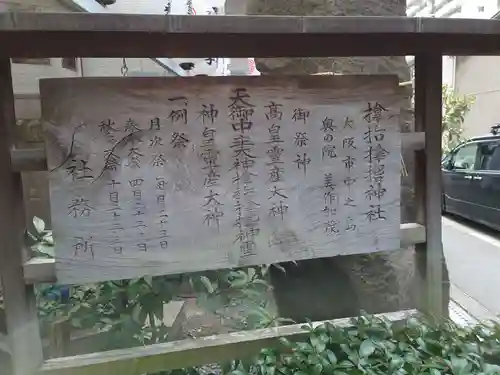 𪮷抬𪮷𪮇神社
大阪市中之島
奥の院 美作加茂
御祭神
高皇霊産大神
天御中主大神𪮷抬𪮷𪮇神霊
神皇霊産大神
一例祭
月次祭 二十三日
春大祭 四月二十二、二十三日
秋大祭 十月二十二、二十三日
社務所